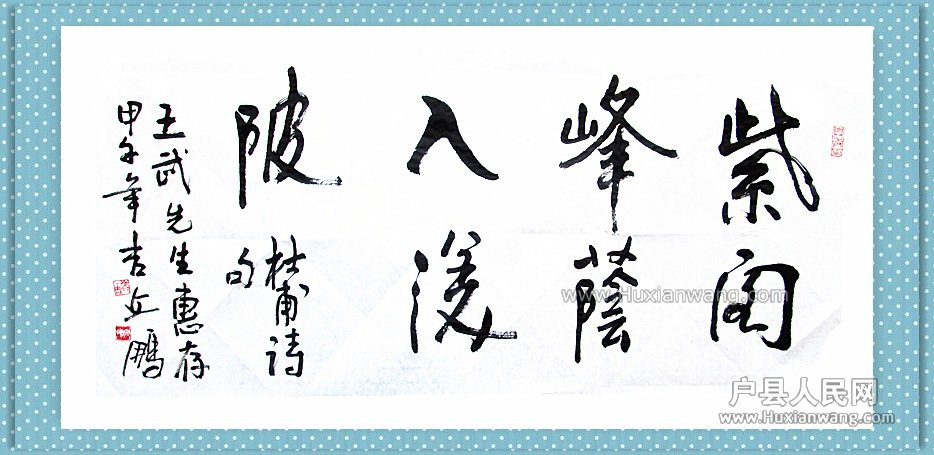 紫阁
峰蔭
入渼
陂
杜甫诗
句
王武先生惠存
甲午年吉丘鹏
www.Huxianwang.com
户县人民网
www.Huxianwang.com